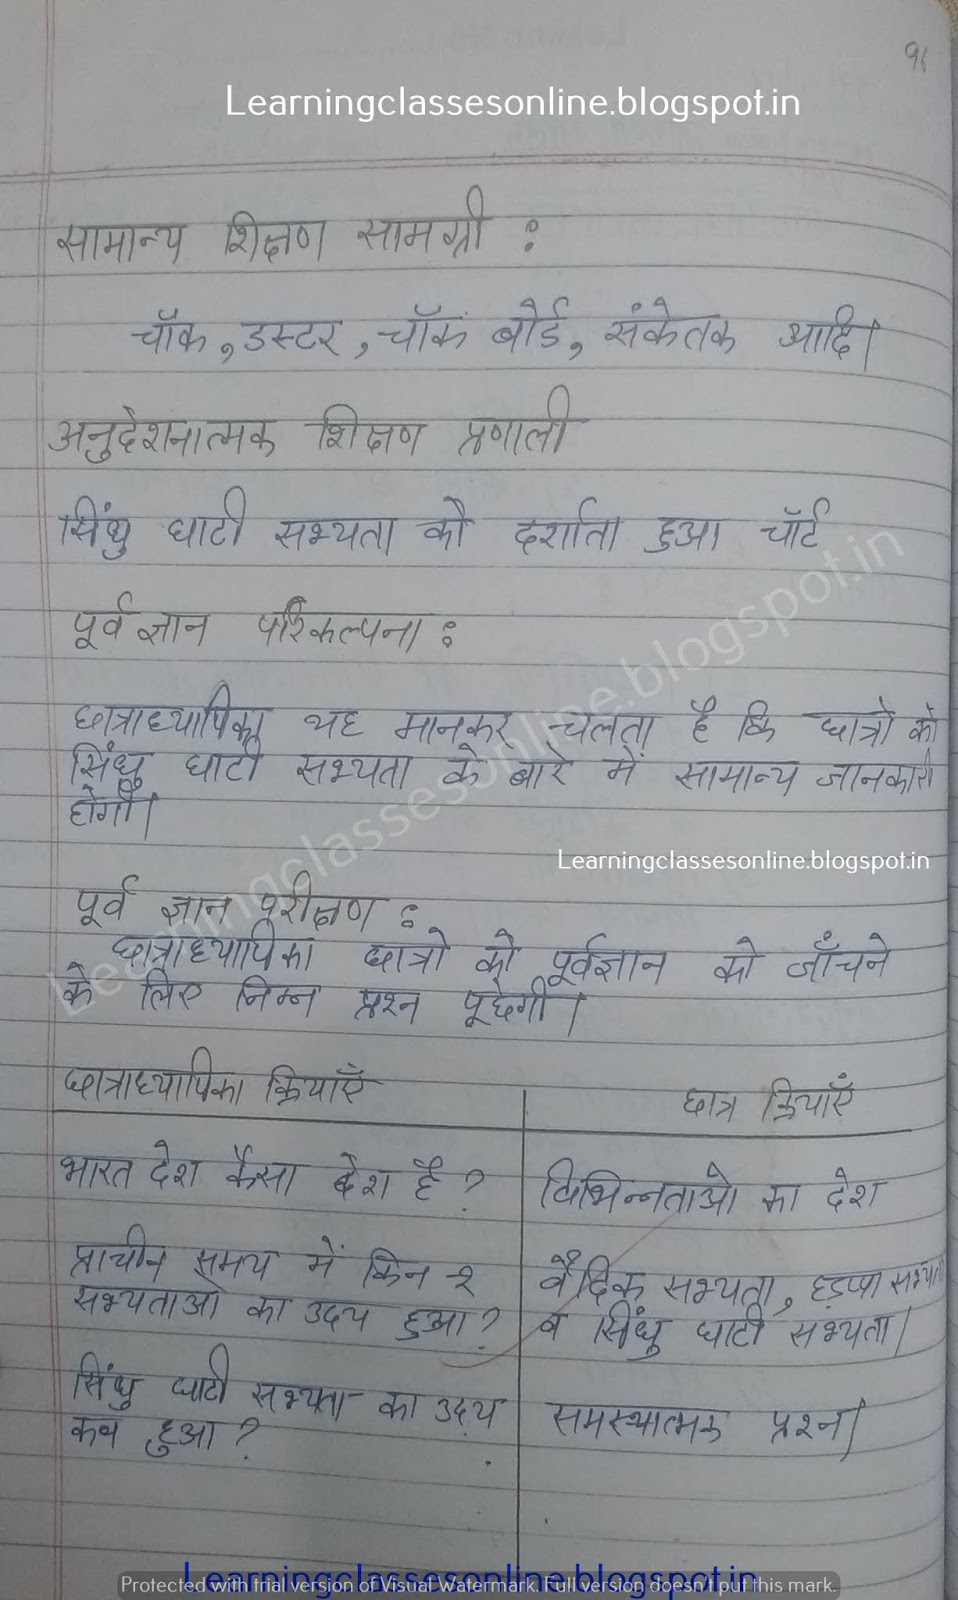 91
Learningclassesonline.blogspot.in
सामान्य शिक्षण सामग्री :
चॉक, डस्टर, चॉक बोर्ड, संकेतक आदि।
अनुदेशनात्मक शिक्षण प्रणाली
सिंधु घाटी सभ्यता को दर्शाता हुआ चॉर्ट
पूर्व ज्ञान परिकल्पना :
छात्राध्यापिका यह मानकर चलता है कि छात्रो को
सिंधु घाटी सभ्यता के बारे में सामान्य जानकारी
होगी।
Learningclassesonline.blogspot.in
Learningclassesonline.blogspot.in
पूर्व ज्ञान परीक्षण :
छात्राध्यापिका छात्रो को पूर्वज्ञान को जाँचने
के लिए निम्न प्रश्न पूछेगी।
छात्राध्यापिका क्रियाएँ छात्र क्रियाएँ
भारत देश कैसा देश है ? विभिन्नताओ का देश
प्राचीन समय में किन २ वैदिक सभ्यता, हड़प्पा सभ्यता
सभ्यताओ का उदय हुआ ? व सिंधु घाटी सभ्यता।
सिंधु घाटी सभ्यता का उदय समस्यात्मक प्रश्न।
कब हुआ ?
Learningclassesonline.blogspot.in
Protected with trial version of Visual Watermark. Full version doesn't put this mark.